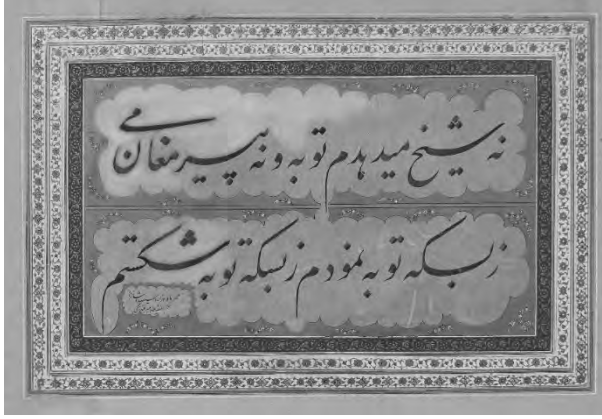 نه شیخ میدهدم توبه و نه پیر مغان می
زبسکه توبه نمودم زبسکه توبه شکستم